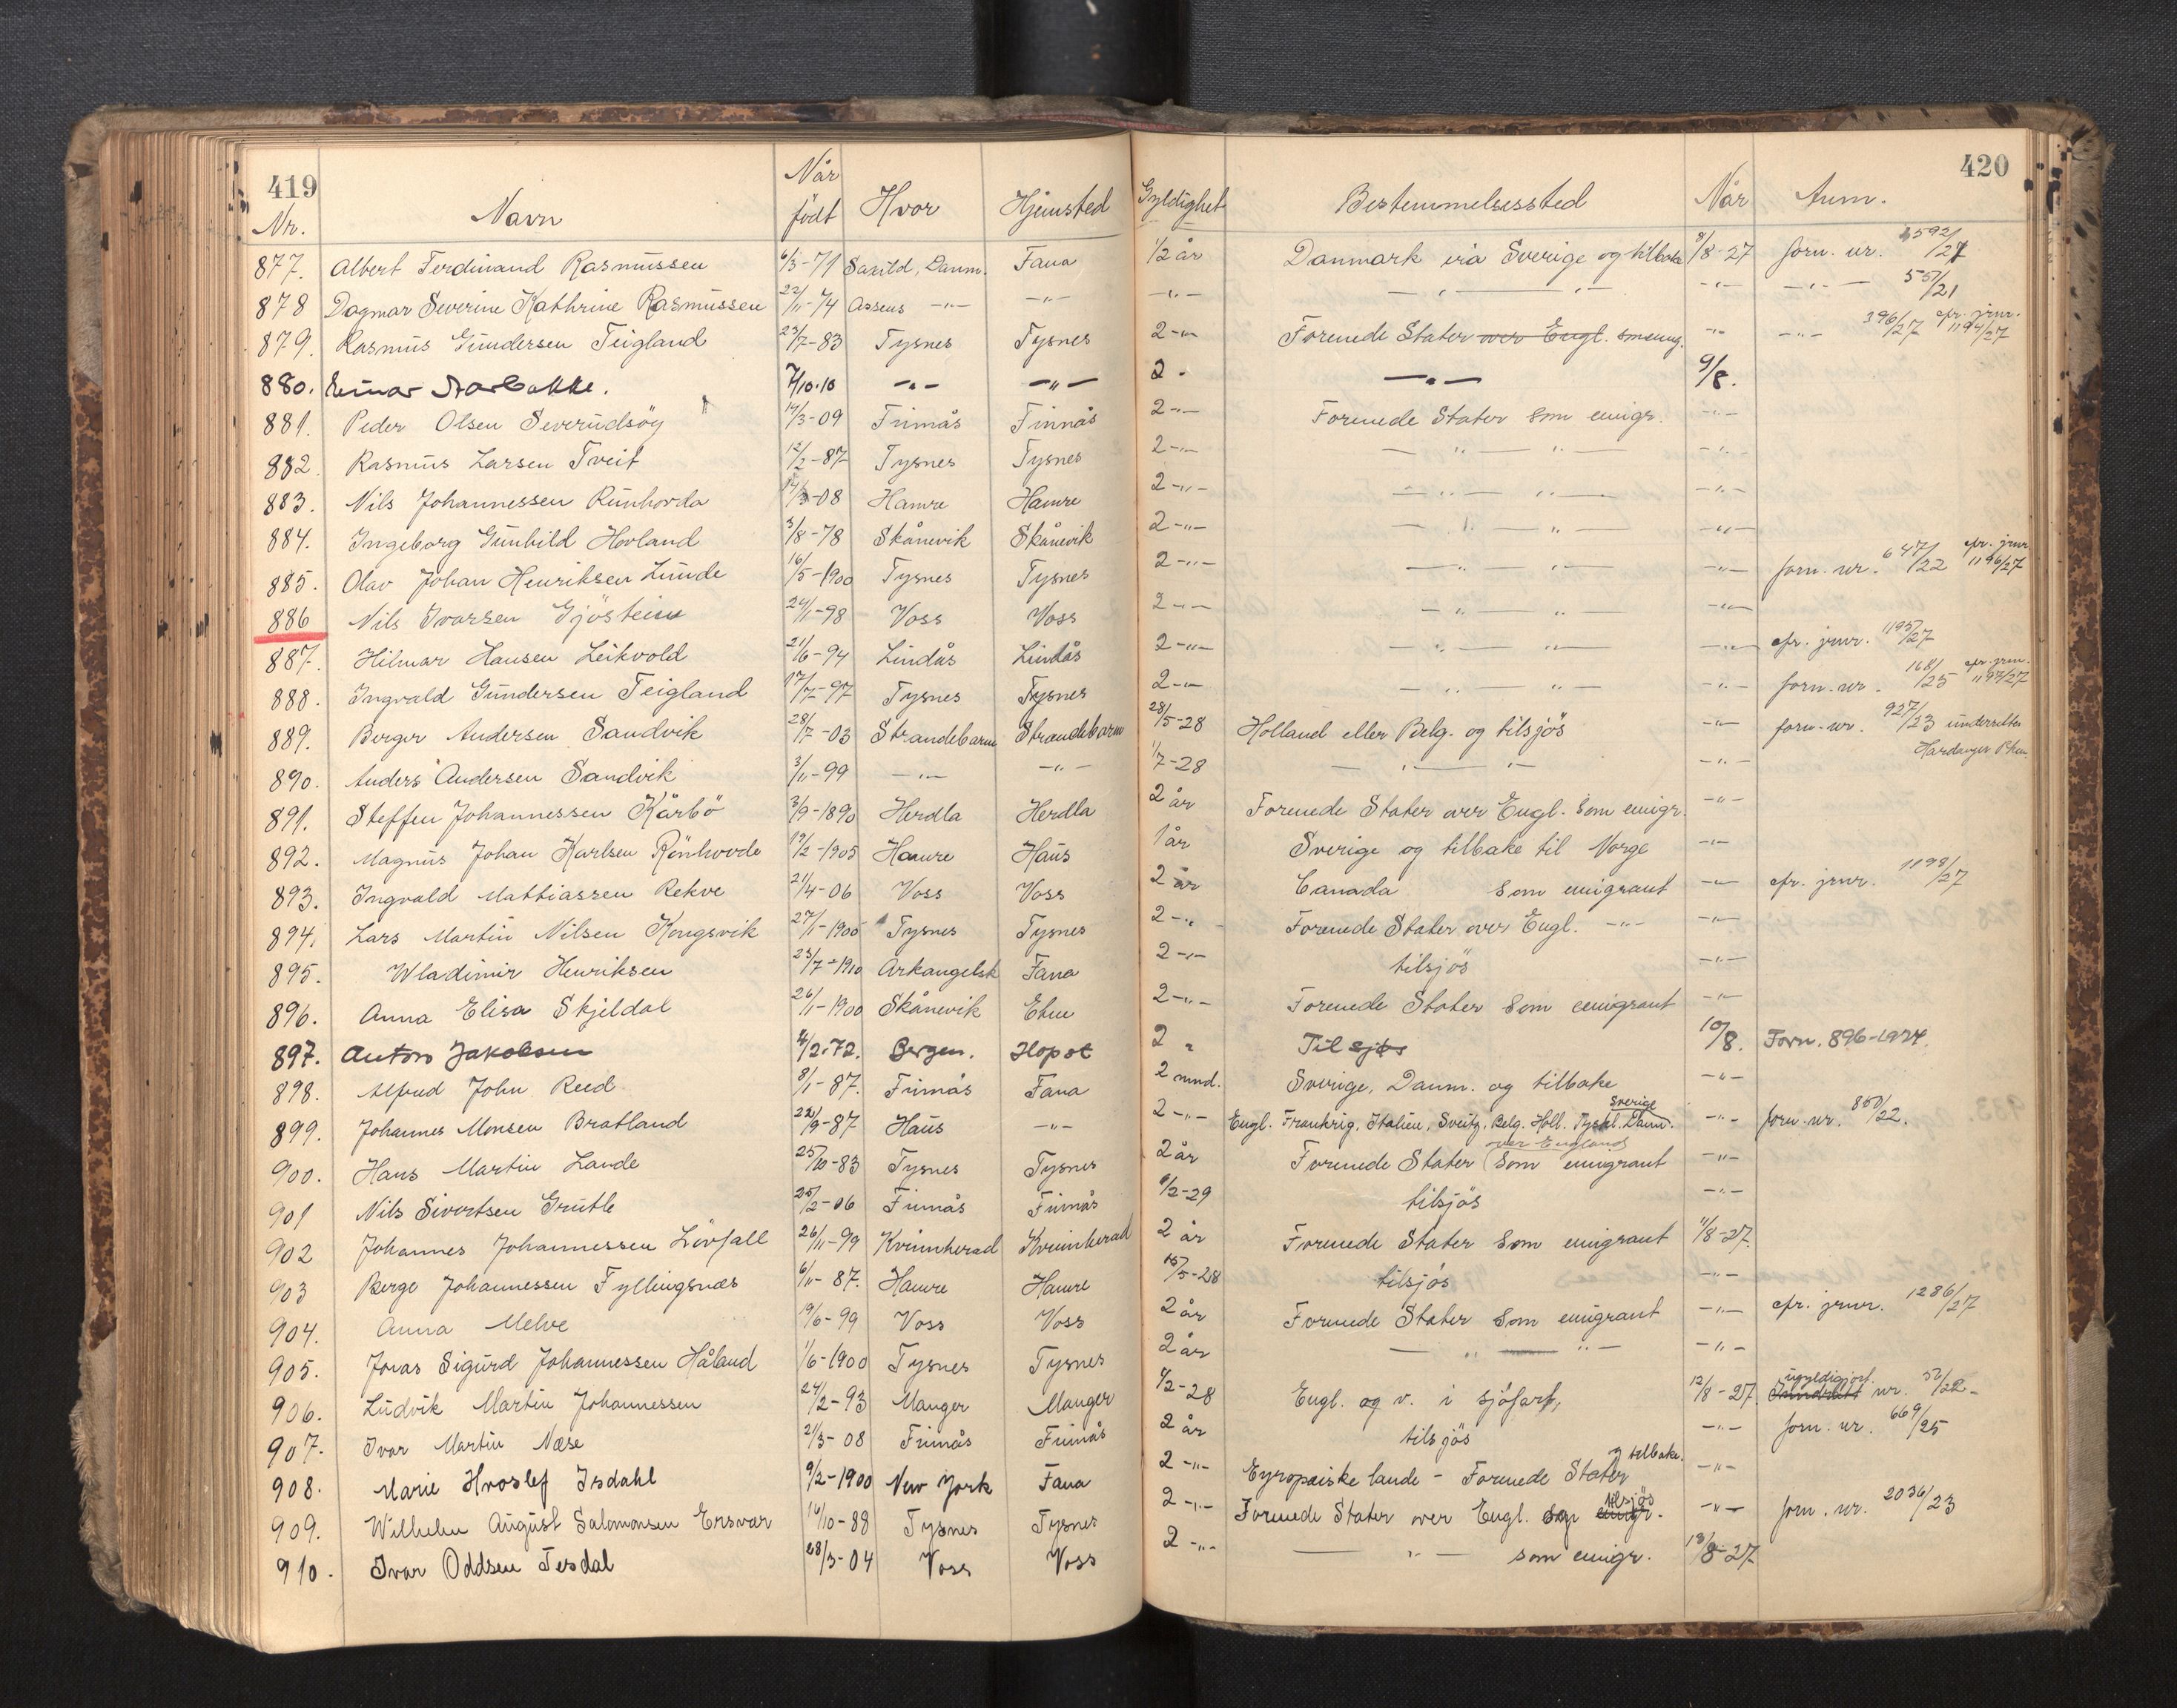 419
420
Nr. Navn Når födt Hvor Hjemsted Gyldighet Bestemmelsessted Når Anm.
877. Albert Ferdinand Rasmussen 6/3-71 Saxild, Danm. Fana 1/2 år Danmark via Sverige og tilbake 8/8-27 forn. nr.
878 Dagmar Severine Kathrine Rasmussen 22/11-74 Assens -"- -"- -"- — " — " — -"- -"- 55/21
879. Rasmus Gundersen Teigland 23/7-83 Tysnes Tysnes 2-"- Forenede Stater over Engl. som emig. -"- -"- 396/27 cfr. jrnr. 1194/27
880. Einar Norbakke. 7/10.10 -"- -"- 2 - -"- 9/8.
881. Peder Olsen Severudsöy 14/3-09 Finnås Finnås 2-"- Forenede Stater som emigr. -"-
882. Rasmus Larsen Tveit 12/2-87 Tysnes Tysnes 2-"- — " — " — -"-
883. Nils Johannessen Runhovda -08 Hamre Hamre 2-"- — " — " — -"-
884. Ingeborg Gunhild Hovland 3/8-78 Skånevik Skånevik 2-"- — " — " — -"-
885. Olav Johan Henriksen Lunde 16/5-1900 Tysnes Tysnes 2-"- — " — " — -"- forn. nr. 647/22 cfr. jrnr 1196/27
886 Nils Ivarsen Gjöstein 24/1-98 Voss Voss 2-"- — " — " — -"-
887. Hilmar Hansen Leikvold 21/6-94 Lindås Lindås 2-"- — " — " — -"- cfr. jrnr. 1195/27
888. Ingvald Gundersen Teigland 17/7-97 Tysnes Tysnes 2-"- — " — " — -"- forn. nr. 168/25 cfr. jrnr. 1197/27
889. Berger Andersen Sandvik 28/7-03 Strandebarm Strandebarm 28/5-28 Holland eller Belg. og tilsjös -"- forn. nr. 927/23
Hardanger
890. Anders Andersen Sandvik 3/11-99 -"- -"- 1/7-28 — " — " — -"-
891. Steffen Johannessen Kårbö 3/9-1890 Herdla Herdla 2 år Forenede Stater over Engl. som emigr. -"-
892. Magnus Johan Karlsen Rönhovde 19/2-1905 Hamre Haus 1 år Sverige og tilbake til Norge -"-
893. Ingvald Mathiassen Rekve 21/4-06 Voss Voss 2 år Canada som emigrant -"- cfr. jrnr. 1198/27
894. Lars Martin Nilsen Kongsvik 27/1-1900 Tysnes Tysnes 2-"- Forenede Stater over Engl. -"- -"-
895. Wladimir Henriksen 23/7-1910 Arkangelsk Fana 2-"- tilsjös -"-
896. Anna Elisa Skjeldal 26/1-1900 Skånevik Etne 2-"- Forenede Stater som emigrant -"-
897. Anton Jakobsen 4/2.72. Bergen. Hopst 2 " Til sjös 10/8. Forn. 896-1924
898. Alfred John Reed 8/1-87. Finnås Fana 2 mnd. Sverige, Danm. og tilbake -"-
899. Johannes Monsen Bratland 22/9-87 Haus -"- 2-"- Engl. Frankrig, Italien, Sveitz, Belg. Holl. Tyskl. Sverige Danm. -"- forn. nr. 850/22.
900. Hans Martin Lande 25/10-83 Tysnes Tysnes 2 år Forenede Stater over England som emigrant -"-
901 Nils Sivertsen Grutle 25/2-06 Finnås Finnås 9/2-29 tilsjös -"-
902 Johannes Johannessen Lövfall 26/11-99 Kvinnherad Kvinnherad 2 år Forenede Stater som emigrant 11/8-27.
903 Berge Johannessen Fyllingsnes 6/11-87. Hamre Hamre 15/5-28 tilsjös -"-
904. Anna Melve 19/6-99 Voss Voss 2 år Forenede Stater som emigrant -"- cfr. jrnr. 1286/27
905. Jonas Sigurd Johannessen Håland 1/6-1900 Tysnes Tysnes 2 år — " — " — -"-
906. Ludvik Martin Johannessen 24/2-93 Manger Manger 9/2-28 Engl. og v. i sjöfart, 12/8-27. ugyldigjort. nr. 52/22-
907. Ivar Martin Næse 21/3-08 Finnås Finnås 2 år tilsjös -"- forn. nr. 669/25
908. Marie Hroslef Isdahl 9/2-1900 New York Fana 2-"- Eyropæiske lande - Forenede Stater og tilbake. -"-
909. Wilhelm August Salomonsen Ersvær 14/10-88 Tysnes Tysnes 2-"- Forenede Stater over Engl. og emigr. tilsjös -"- forn. nr. 2036/23
910. Ivar Oddsen Tesdal 28/3-04 Voss Voss 2-"- — " — som emigr. 13/8-27